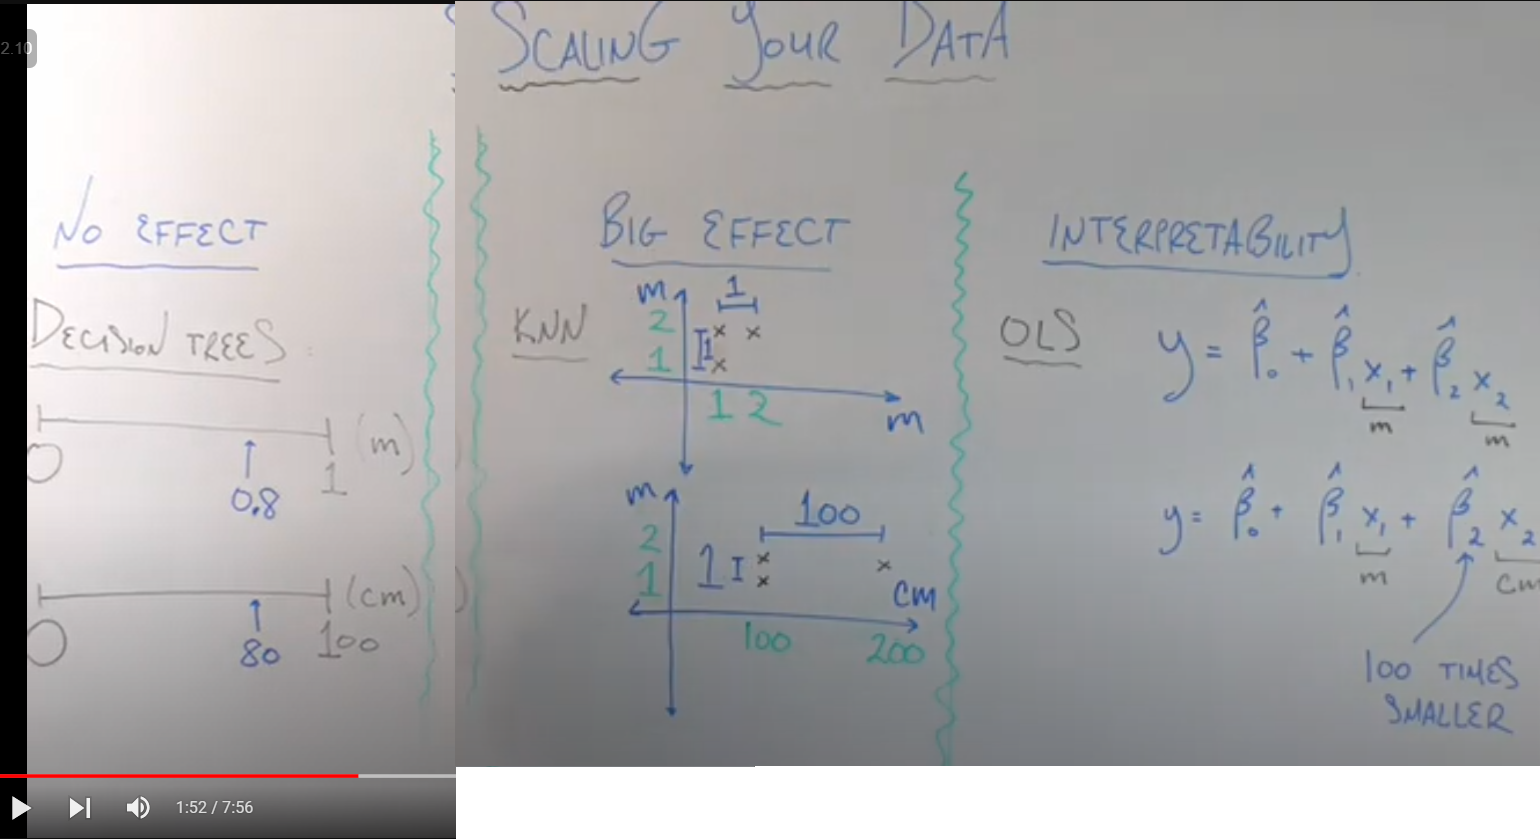 2.10
SCALING YOUR DATA
NO EFFECT
DECISION TREES
0
0.8
1
(m)
0
80
100
(cm)
1:52 / 7:56
BIG EFFECT
KNN
m
1
2
1
1
1 2
m
m
100
2
1
1
cm
100
200
INTERPRETABILITY
OLS
y = β̂₀ + β̂₁ x₁ + β̂₂ x₂
m
m
y = β̂₀ + β̂₁ x₁ + β̂₂ x₂
m
cm
100 TIMES
SMALLER